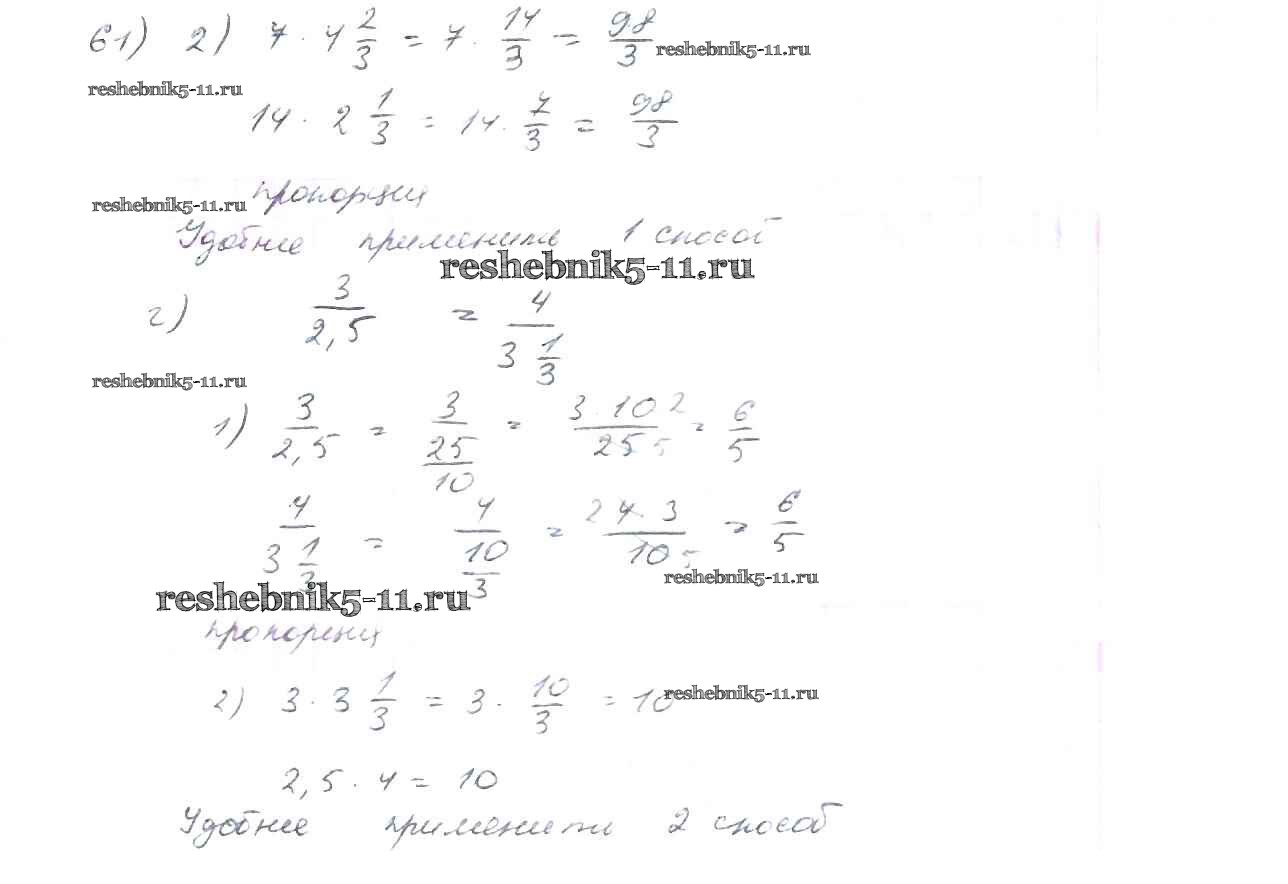 61) 2) 7 · 4 2/3 = 7 · 14/3 = 98/3 reshebnik5-11.ru
reshebnik5-11.ru
14 · 2 1/3 = 14 · 7/3 = 98/3
reshebnik5-11.ru пропорция
Удобнее применить 1 способ
reshebnik5-11.ru
г) 3/2,5 = 4/(3 1/3)
reshebnik5-11.ru
1) 3/2,5 = 3/(25/10) = 3 · 10 2/25 5 = 6/5
4/(3 1/3) = 4/(10/3) = 2 4 · 3/10 5 = 6/5
reshebnik5-11.ru
reshebnik5-11.ru
пропорция
2) 3 · 3 1/3 = 3 · 10/3 = 10 reshebnik5-11.ru
2,5 · 4 = 10
Удобнее применить 2 способ